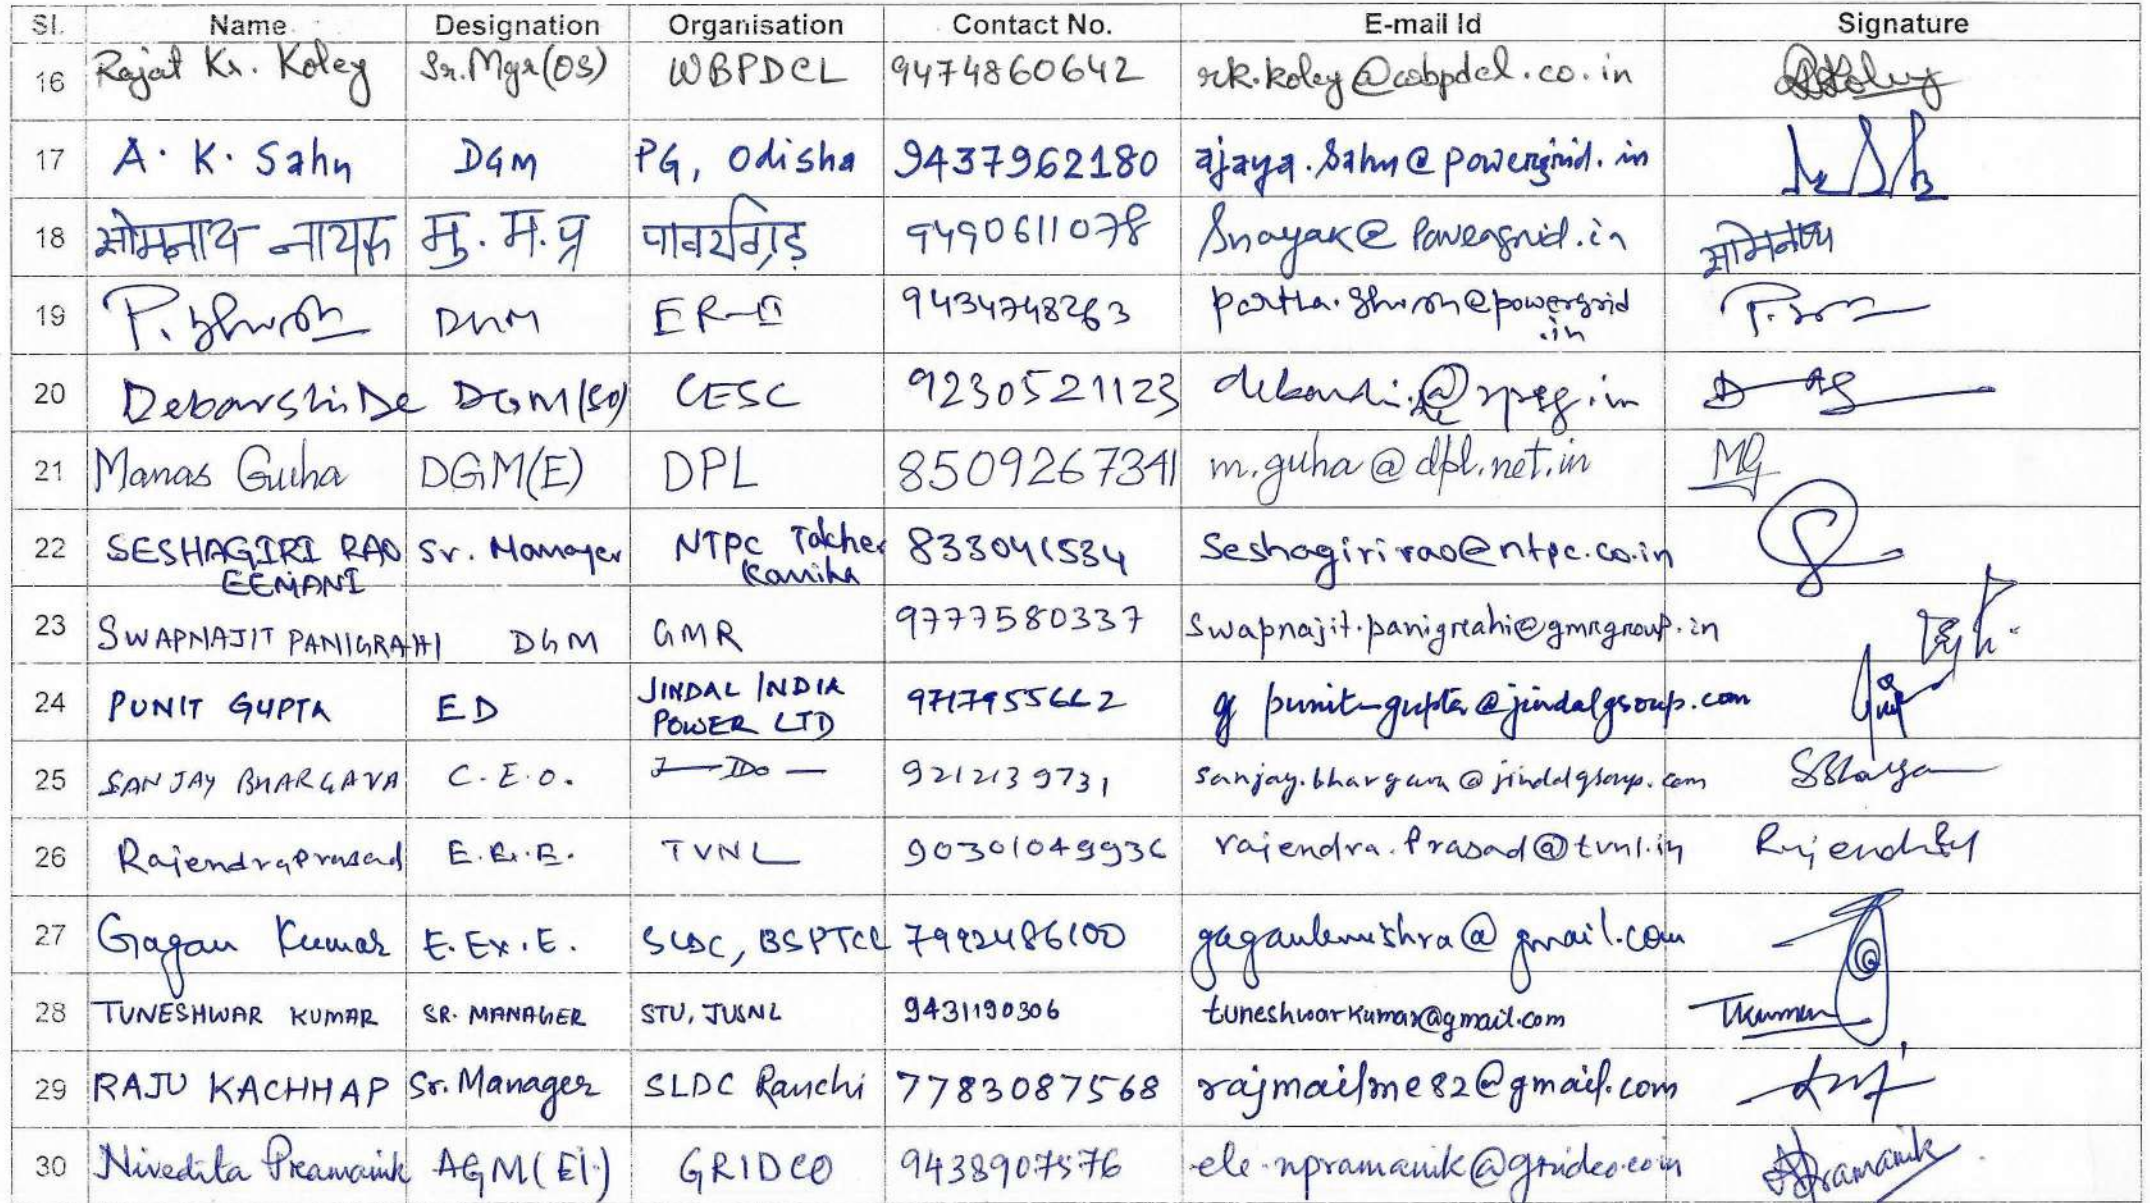 Sl. Name Designation Organisation Contact No. E-mail Id Signature
16 Rajat Kr. Koley Sr.Mgr(OS) WBPDCL 9474860642 rk.koley@wbpdcl.co.in RKoley
17 A. K. Sahu DGM PG, Odisha 9437962180 ajaya.sahu@powergrid.in
18 सोमनाथ नायक मु. म. प्र पावरग्रिड़ 9490611078 Snayak@Powergrid.in सोमनाथ
19 P. Ghosh DGM ER-II 9434748263 partha.ghosh@powergrid
.in
20 Debarshi De DGM(SO) CESC 9230521123 debarshi.de@rpsg.in
21 Manas Guha DGM(E) DPL 8509267341 m.guha@dpl.net.in MG
22 SESHAGIRI RAO Sr. Manager NTPC Talcher 833041534 Seshagirirao@ntpc.co.in
EEMANI Kaniha
23 SWAPNAJIT PANIGRAHI DGM GMR 9777580337 swapnajit.panigrahi@gmrgroup.in
24 PUNIT GUPTA ED JINDAL INDIA 9717955662 punit-gupta@jindalgroup.com
POWER LTD
25 SANJAY BHARGAVA C.E.O. —Do— 9212139731 sanjay.bhargava@jindalgroup.com SBhargava
26 Rajendra prasad E.E.E. TVNL 90301049936 rajendra.Prasad@tvnl.in
27 Gagan Kumar E.Ex.E. SLDC, BSPTCL 7992486100 gagankmishra@gmail.com
28 TUNESHWAR KUMAR SR. MANAGER STU, JUSNL 9431190306 tuneshwarkumar@gmail.com TKumar
29 RAJU KACHHAP Sr. Manager SLDC Ranchi 7783087568 rajmailme82@gmail.com
30 Nivedita Pramanik AGM(El.) GRIDCO 9438907576 ele.npramanik@gridco.co.in NPramanik